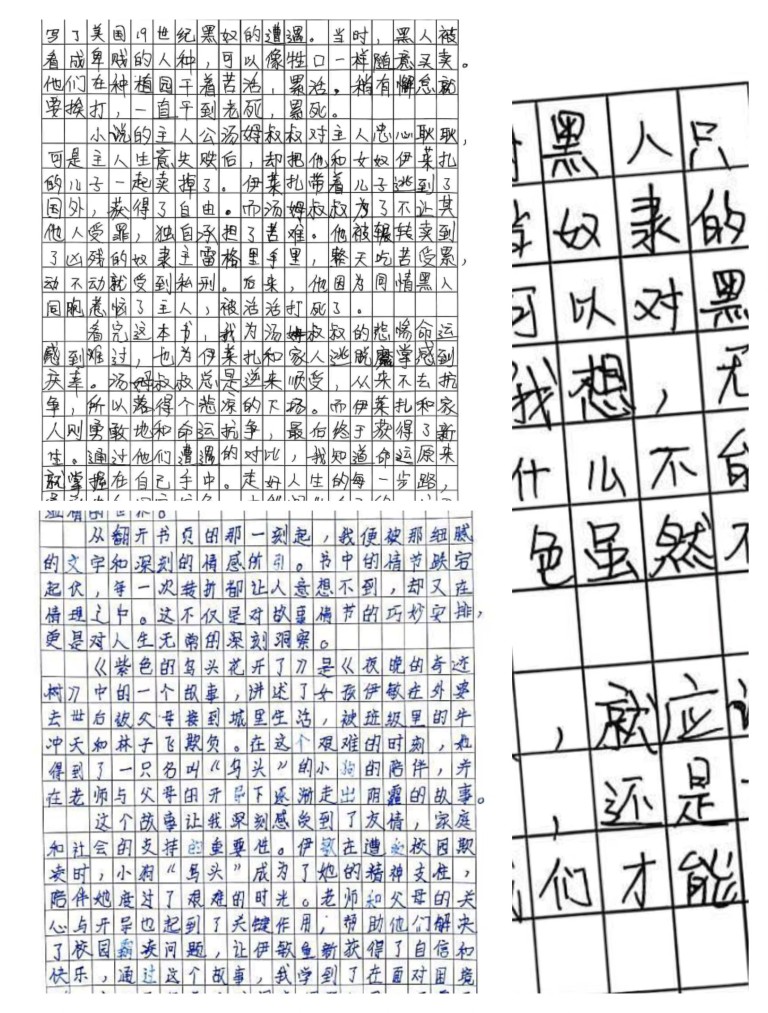 写了美国19世纪黑奴的遭遇。当时，黑人被
看成卑贱的人种，可以像牲口一样随意买卖。
他们在种植园干着苦活，累活。稍有懈怠就
要挨打，一直干到老死，累死。
小说的主人公汤姆叔叔对主人忠心耿耿，
可是主人生意失败后，却把他和女奴伊莱扎
的儿子一起卖掉了。伊莱扎带着儿子逃到了
国外，获得了自由。而汤姆叔叔为了不让其
他人受罪，独自承担了苦难。他被辗转卖到
了凶残的奴隶主雷格里手里，整天吃苦受累，
动不动就受到私刑。后来，他因为同情黑人
同胞惹恼了主人，被活活打死了。
看完这本书，我为汤姆叔叔的悲惨命运
感到难过，也为伊莱扎和家人逃脱魔掌感到
庆幸。汤姆叔叔总是逆来顺受，从来不去抗
争，所以落得个悲凉的下场。而伊莱扎和家
人则勇敢地和命运抗争，最后终于获得了新
生。通过他们遭遇的对比，我知道命运原来
就掌握在自己手中。走好人生的每一步路，
从翻开书页的那一刻起，我便被那细腻
的文字和深刻的情感所引。书中的情节跌宕
起伏，每一次转折都让人意想不到，却又在
情理之中。这不仅是对故事情节的巧妙安排，
更是对人生无常的深刻洞察。
《紫色的乌头花开了》是《夜晚的奇迹
树》中的一个故事，讲述了女孩伊敏在外婆
去世后被父母接到城里生活，被班级里的牛
冲天和林子飞欺负。在这个艰难的时刻，她
得到了一只名叫“乌头”的小狗的陪伴，并
在老师与父母的开导下逐渐走出阴霾的故事。
这个故事让我深刻感受到了友情，家庭
和社会的支持的重要性。伊敏在遭受校园欺
凌时，小狗“乌头”成为了她的精神支柱，
陪伴她度过了艰难的时光。老师和父母的关
心与开导也起到了关键作用，帮助他们解决
了校园霸凌问题，让伊敏重新获得了自信和
快乐，通过这个故事，我学到了在面对困境
黑人只
奴隶的
可以对黑
我想，无
什么不能
色虽然不
，就应该
，还是
我们才能